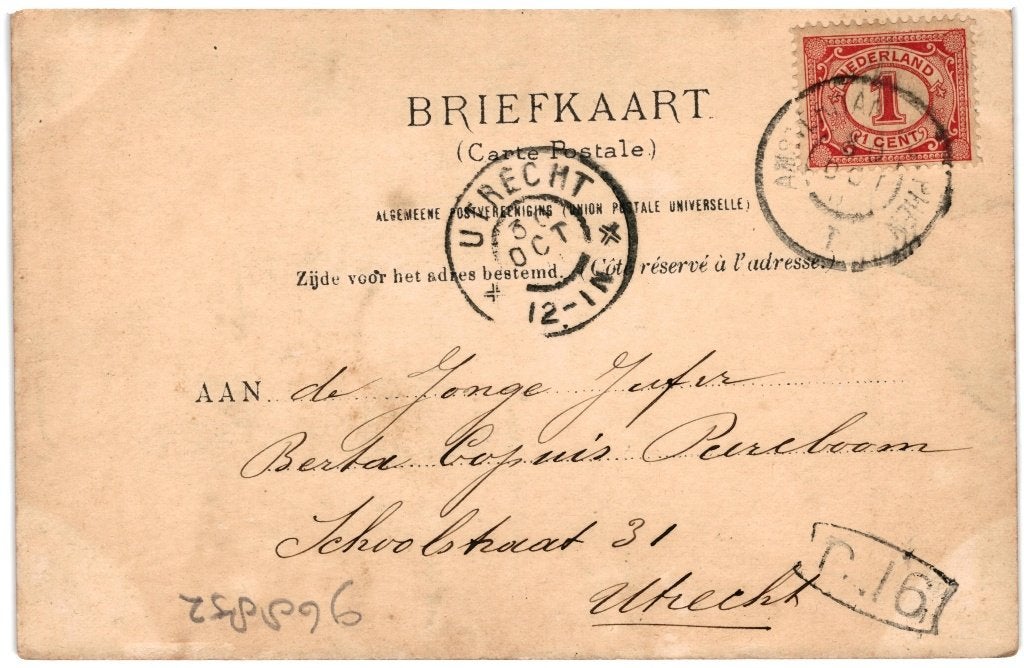 NEDERLAND
1
1 CENT
BRIEFKAART
(Carte Postale.)
ALGEMEENE POSTVEREENIGING (UNION POSTALE UNIVERSELLE)
Zijde voor het adres bestemd. (Côté réservé à l'adresse.)
UTRECHT
30
OCT
12-1N
OCT
AAN de Jonge Jufer
Berta Copuis Peereboom
Schoolstraat 31
Utrecht
16